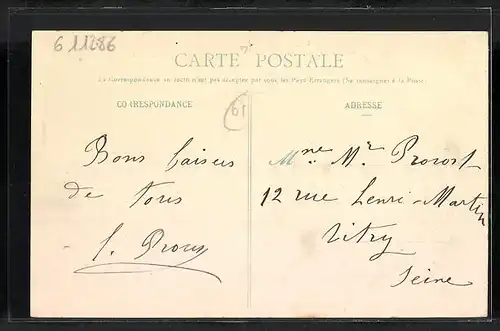 6 11286
CARTE POSTALE
La Correspondance au recto n'est pas acceptée par tous les Pays Etrangers (Se renseigner à la Poste)
CORRESPONDANCE
ADRESSE
61
Bons baisers
de Tous
Mme Mr Provost
12 rue Henri-Martin
Vitry
Seine